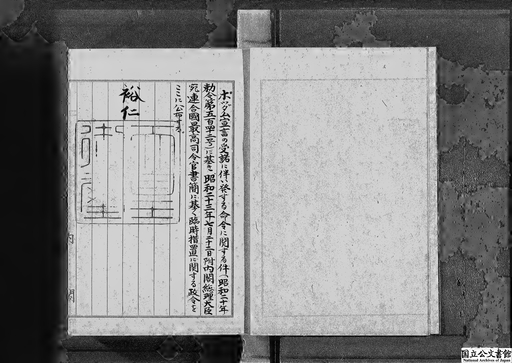 ポツダム宣言の受諾に伴い発する命令に関する件(昭和二十年
勅令第五百四十二号)に基く昭和二十三年七月二十二日附内閣総理大臣
宛連合國最高司令官書簡に基く臨時措置に関する政令を
ここに公布する。
裕仁
内閣
国立公文書館
National Archives of Japan